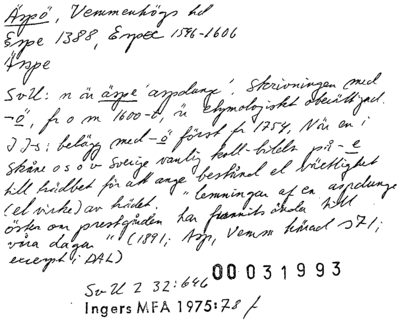 Äspö, Vemmenhögs hd
Espe 1388, Espe 1546-1606
Äspe
SvU: n är äspe 'aspdunge'. Skrivningen med
-ö, fr o m 1600-t, är etymologiskt oberättigad.
JJ-s: belägg med -ö först fr 1754, N är en i
Skåne o s ö v Sverige vanlig koll-bildn på -e
till trädbet för att ange bestånd el växtlighet
(el virke) av trädet. "lemningar af en aspdunge
öster om prestgården har funnits ända till
våra dagar" (1891; Asp, Vemm härad s 71;
excerpt i DAL)
00031993
SvU 2 32:646
Ingers MFA 1975:78 f